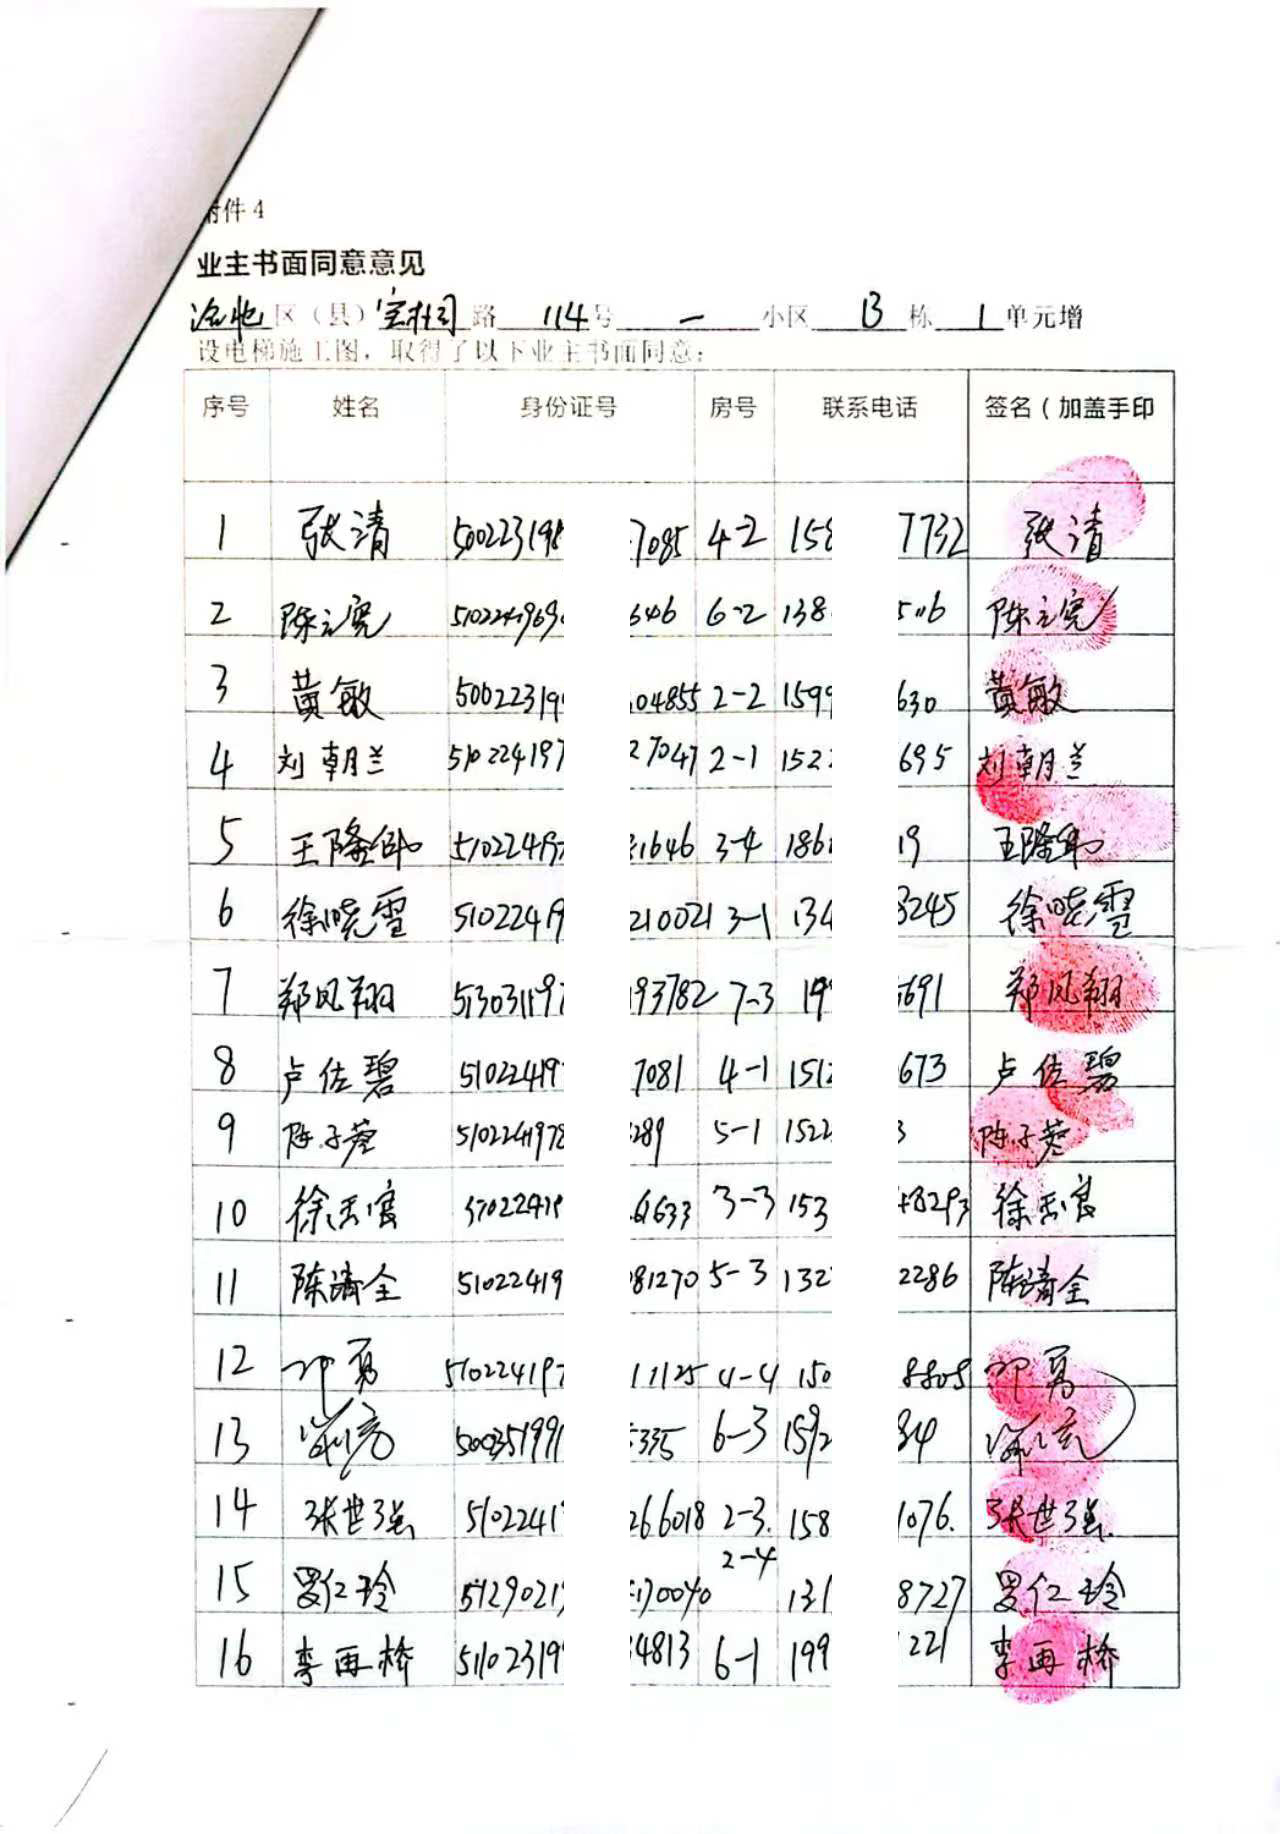 附件 4
业主书面同意意见
涪陵区（县）宝杜司路 114号 一 小区 B 栋 1 单元增
设电梯施工图，取得了以下业主书面同意：
序号 姓名 身份证号 房号 联系电话 签名（加盖手印
1 张清 500223198 7085 4-2 158 7732 张清
2 陈立宽 510224196 646 6-2 138 陈立宽
3 黄敏 50022319 04855 2-2 1599 630 黄敏
4 刘朝兰 510224197 27047 2-1 152 695 刘朝兰
5 王隆 510224197 1646 3-4 186 19 王隆
6 徐晓雪 51022419 210021 3-1 134 3245 徐晓雪
7 郑凤翔 513031197 93782 7-3 19 691 郑凤翔
8 卢佐碧 51022419 7081 4-1 151 673 卢佐碧
9 陈子蓉 5102241978 289 5-1 1522 3 陈子蓉
10 徐 良 51022419 6633 3-3 153 48293 徐 良
11 陈清全 51022419 81270 5-3 132 2286 陈清全
12 邓勇 510224197 11125 4-4 150 8808 邓勇
13 500351991 335 6-3 1592 34
14 张世强 5102241 266018 2-3. 158 1076. 张世强
15 罗仁玲 51290219 170040 2-4 131 8727 罗仁玲
16 李再桥 51102319 4813 6-1 199 221 李再桥